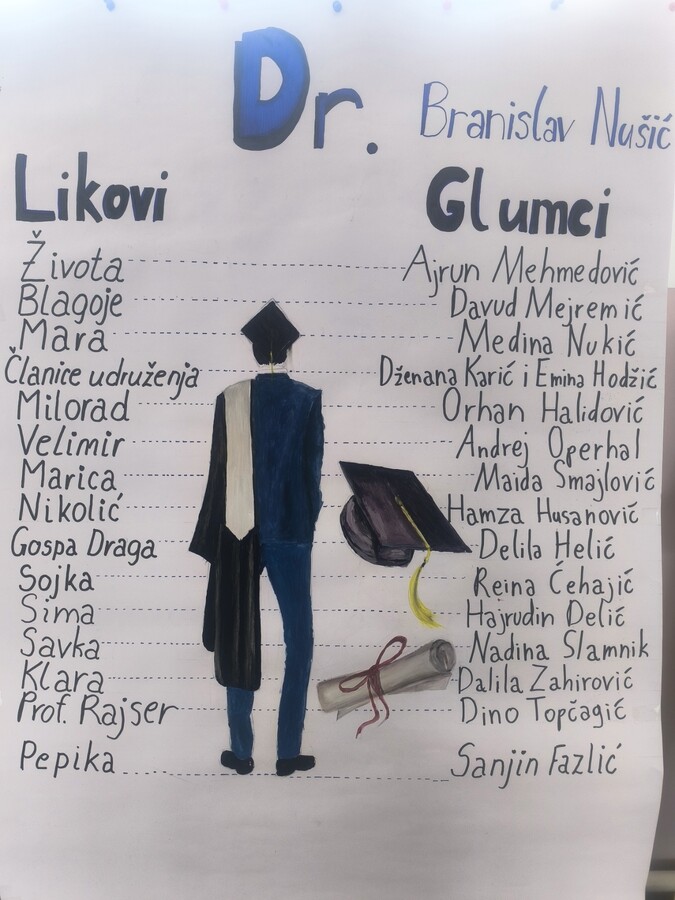 Dr. Branislav Nušić
Likovi Glumci
Života Ajrun Mehmedović
Blagoje Davud Mejremić
Mara Medina Nukić
Članice udruženja Dženana Karić i Emina Hodžić
Milorad Orhan Halidović
Velimir Andrej Operhal
Marica Maida Smajlović
Nikolić Hamza Husanović
Gospa Draga Delila Helić
Sojka Reina Ćehajić
Sima Hajrudin Delić
Savka Nadina Slamnik
Klara Dalila Zahirović
Prof. Rajser Dino Topčagić
Pepika Sanjin Fazlić